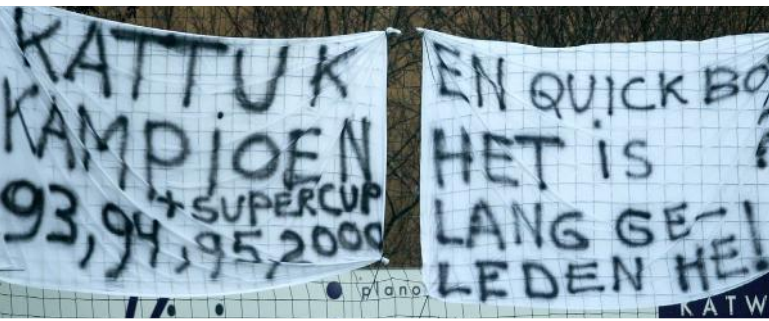 KATTUK
KAMPIOEN
+ SUPERCUP
93, 94, 95, 2000
EN QUICK BO
?
HET iS
LANG GE-
LEDEN HE!
plano
KATW